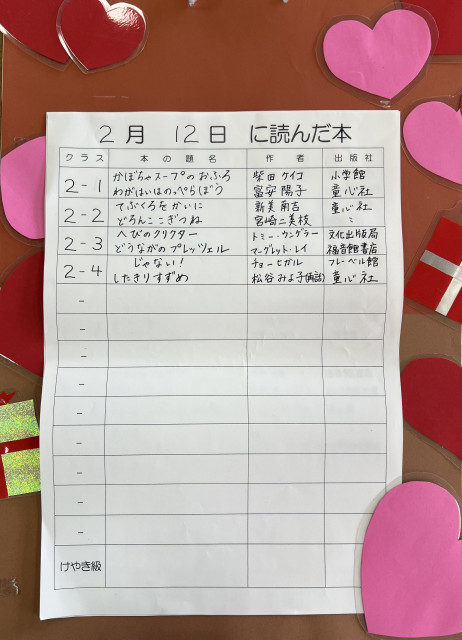 2月 12日 に読んだ本
クラス 本の題名 作者 出版社
2-1 かぼちゃスープのおふろ 柴田ケイコ 小学館
わがはいはのっぺらぼう 富安陽子 童心社
2-2 てぶくろをかいに 新美南吉 童心社
どろんここぎつね 宮崎二美枝 〃
2-3 へびのクリクター トミー・ウンゲラー 文化出版局
どうながのプレッツェル マーグレット・レイ 福音館書店
2-4 じゃない! チョーヒカル フレーベル館
したきりすずめ 松谷みよ子(再話) 童心社
-
-
-
-
-
-
-
-
-
けやき級